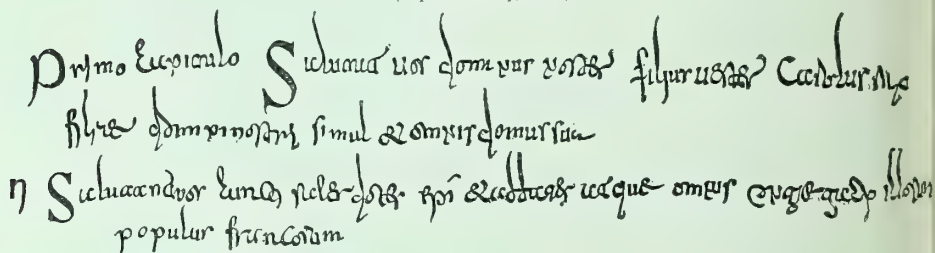 Primo capitulo Salutat uos dominus noster filius uester Carolus rex
filiae domini nostri simul et omnis domus sua
II Salutant uos cuncti sacerdotes epi et abbates atque omnis congregatio illorum
populus francorum